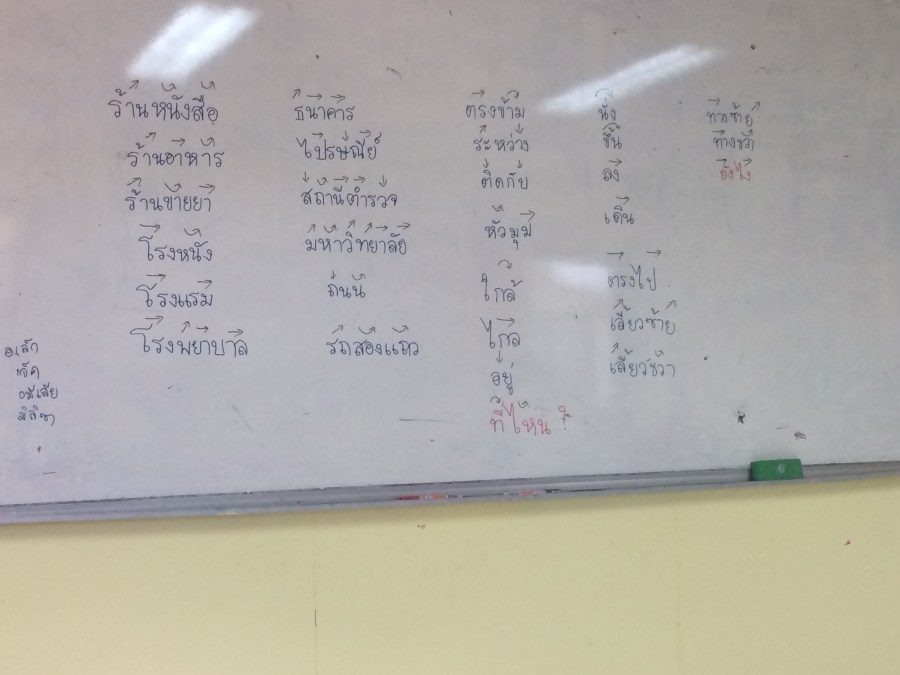 ร้านหนังสือ
ร้านอาหาร
ร้านขายยา
โรงหนัง
โรงแรม
โรงพยาบาล
ธนาคาร
ไปรษณีย์
สถานีตำรวจ
มหาวิทยาลัย
ถนน
รถสองแถว
ตรงข้าม
ระหว่าง
ติดกับ
หัวมุม
ใกล้
ไกล
อยู่
ที่ไหน ?
นั่ง
ขึ้น
ลง
เดิน
ตรงไป
เลี้ยวซ้าย
เลี้ยวขวา
ทางซ้าย
ทางขวา
ยังไง